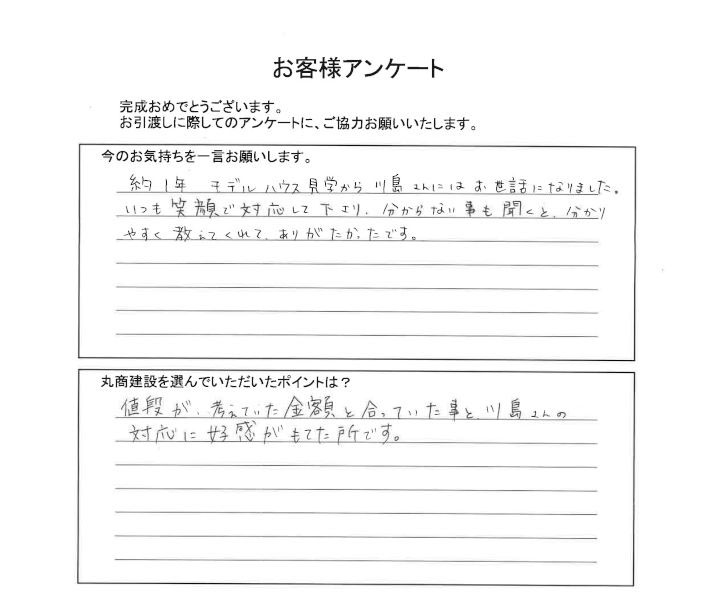 お客様アンケート
完成おめでとうございます。
お引渡しに際してのアンケートに、ご協力お願いいたします。
今のお気持ちを一言お願いします。
約1年 モデルハウス見学から川島さんにはお世話になりました。
いつも笑顔で対応して下さり、分からない事も聞くと、分かり
やすく教えてくれて、ありがたかったです。
丸商建設を選んでいただいたポイントは？
値段が、考えていた金額と合っていた事と、川島さんの
対応に好感がもてた所です。